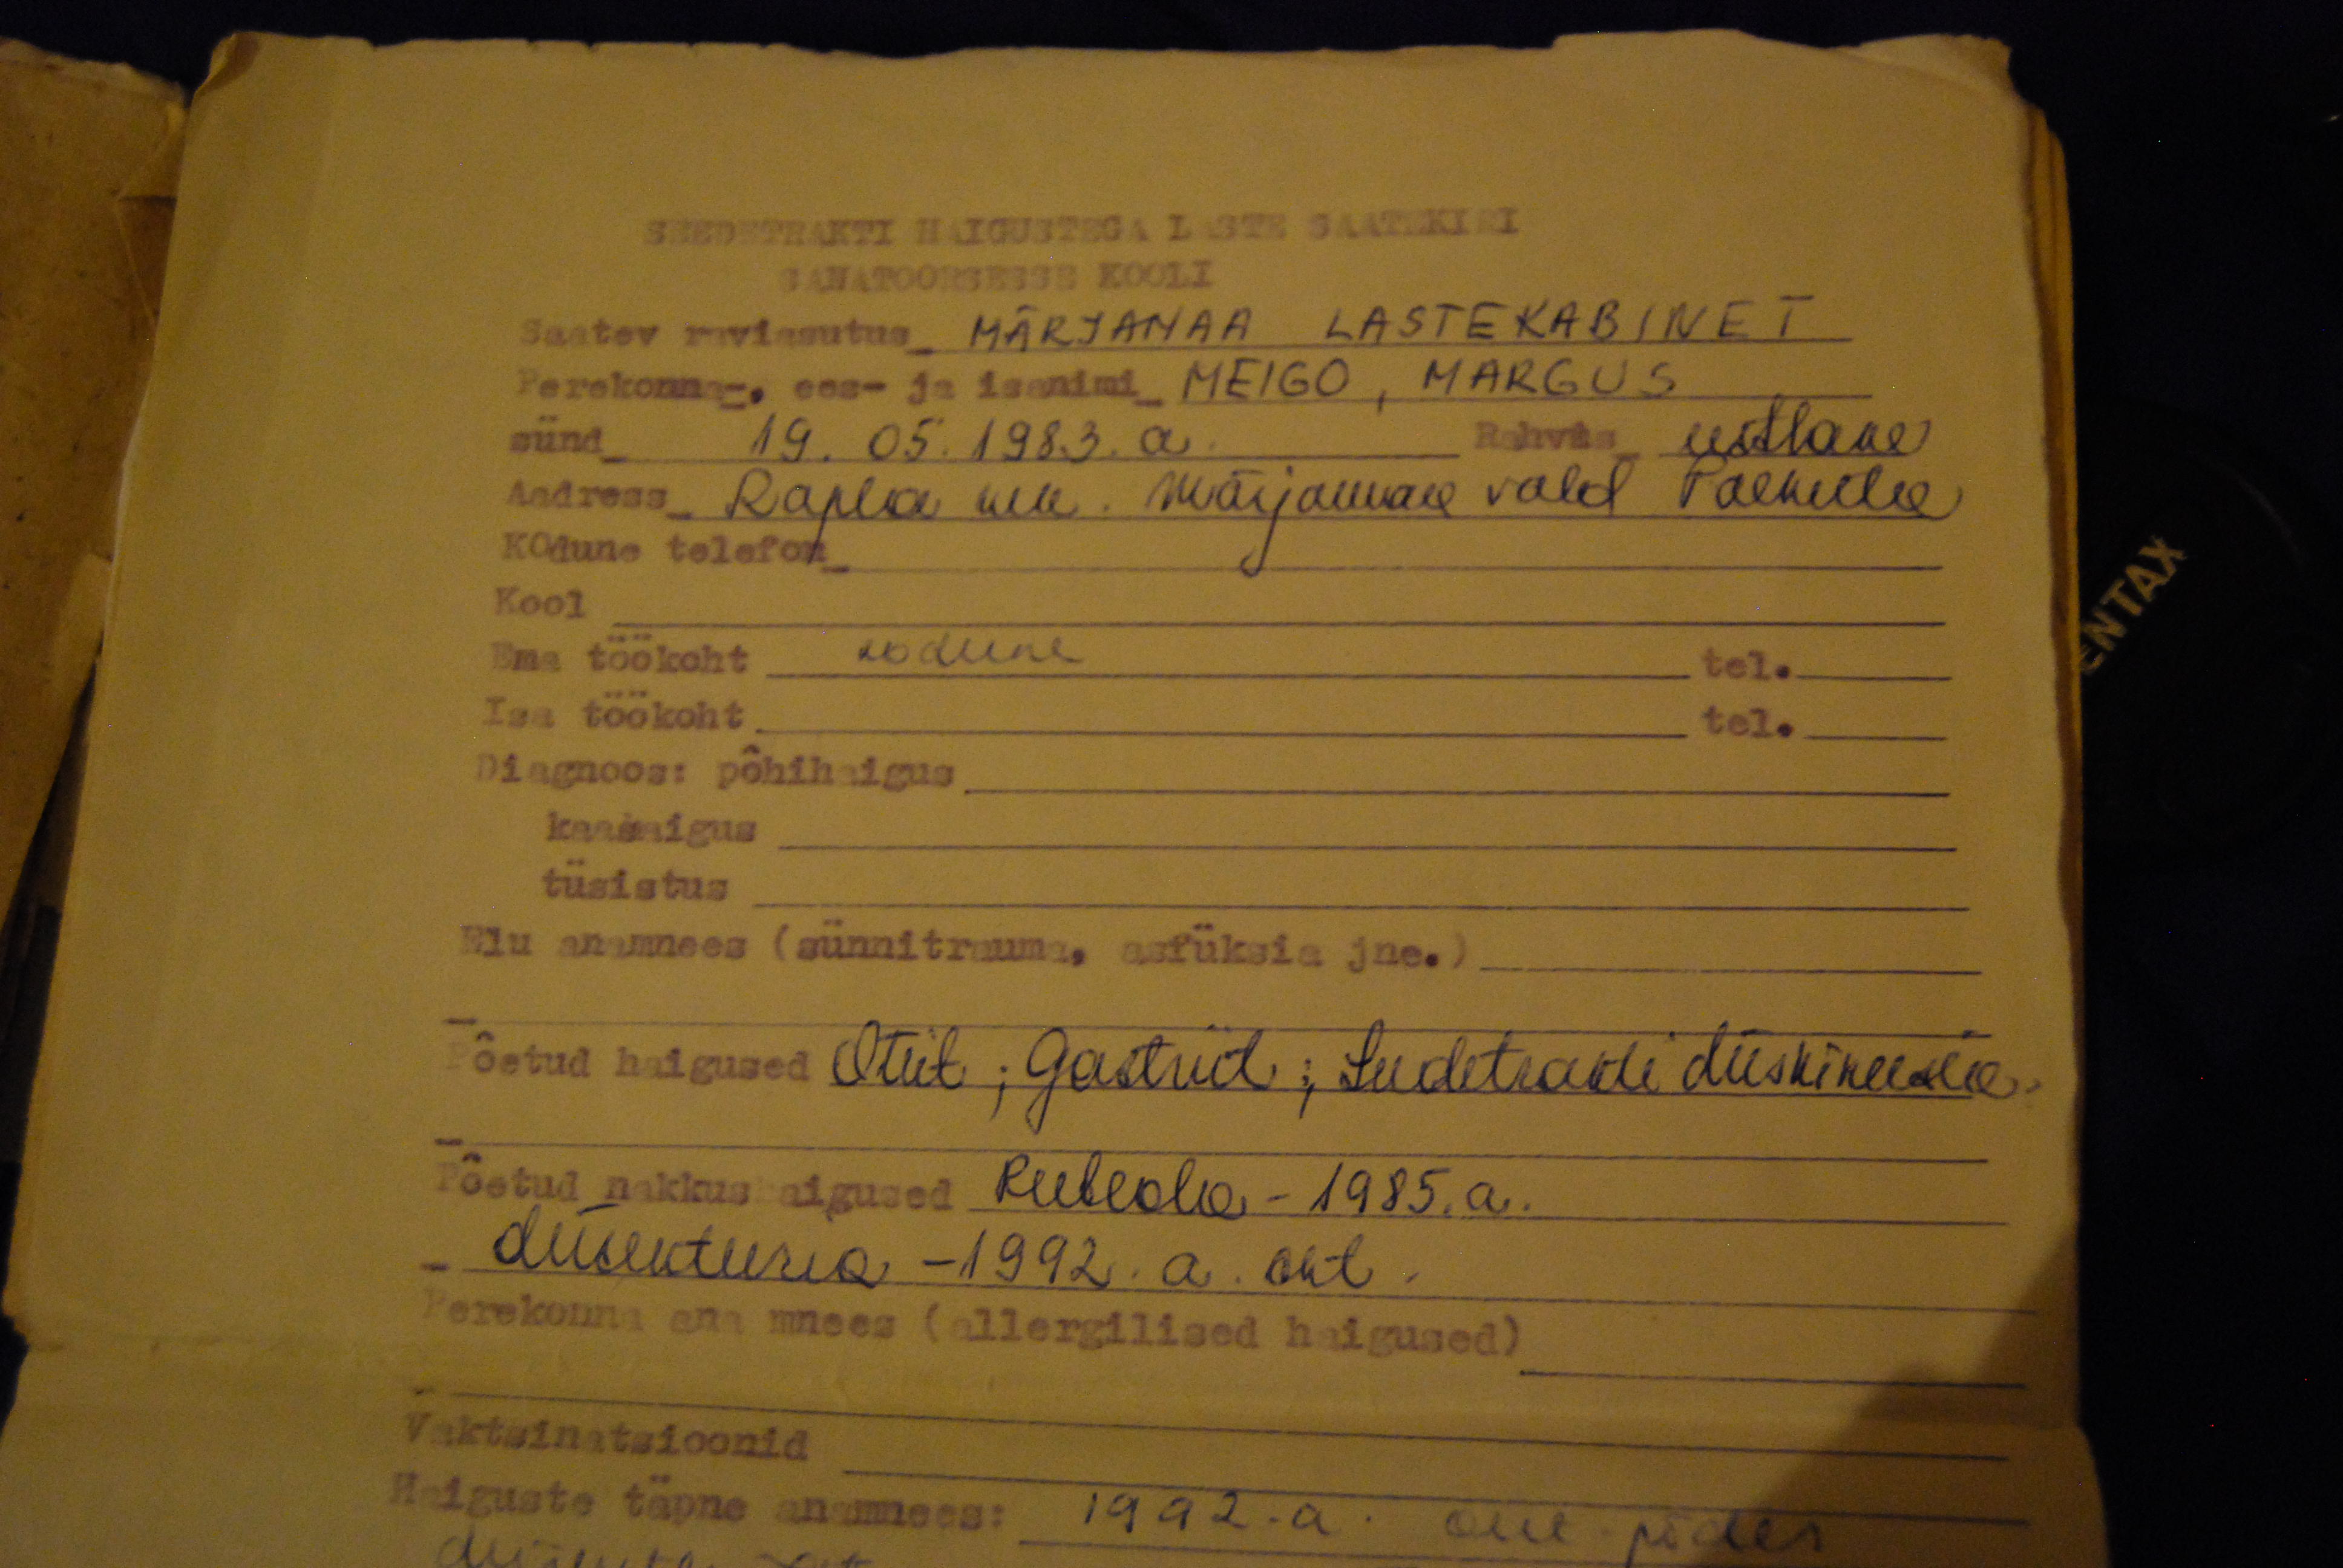 SEEDETRAKTI HAIGUSTEGA LASTE SAATEKIRI
SANATOORSESSE KOOLI
Saatev raviasutus MÄRJAMAA LASTEKABINET
Perekonna-, ees- ja isanimi MEIGO, MARGUS
sünd 19. 05. 1983. a. Rahvus eestlane
Aadress Rapla mk. Märjamaa vald Paeküla
KOdune telefon
Kool
Ema töökoht kodune tel.
Isa töökoht tel.
Diagnoos: põhihaigus
kaashaigus
tüsistus
Elu anamnees (sünnitrauma, asfüksia jne.)
Põetud haigused Otiit ; Gastriit ; Seedetrakti düskineesia.
Põetud nakkushaigused Rubeola - 1985. a.
düsenteeria - 1992. a. okt.
Perekonna ana mnees (allergilised haigused)
Vaktsinatsioonid
Haiguste täpne anamnees: 1992. a. põdes
ENTAX